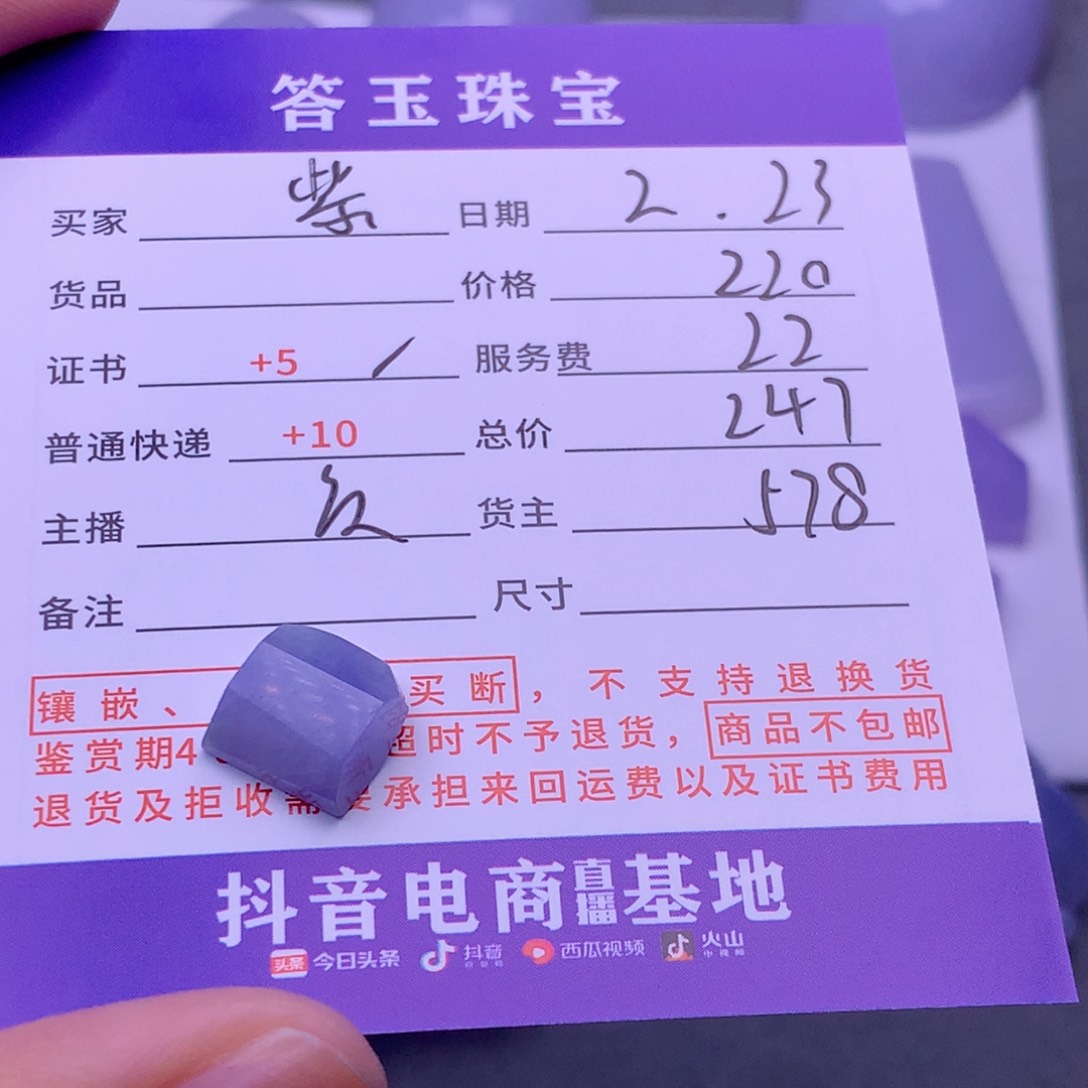 答玉珠宝
买家 紫 日期 2.23
货品 价格 220
证书 +5 / 服务费 22
普通快递 +10 总价 247
主播 货主 578
备注 尺寸
镶嵌、买断，不支持退换货
鉴赏期4 超时不予退货，商品不包邮
退货及拒收需要承担来回运费以及证书费用
抖音电商直播基地
头条 今日头条 抖音 西瓜视频 火山